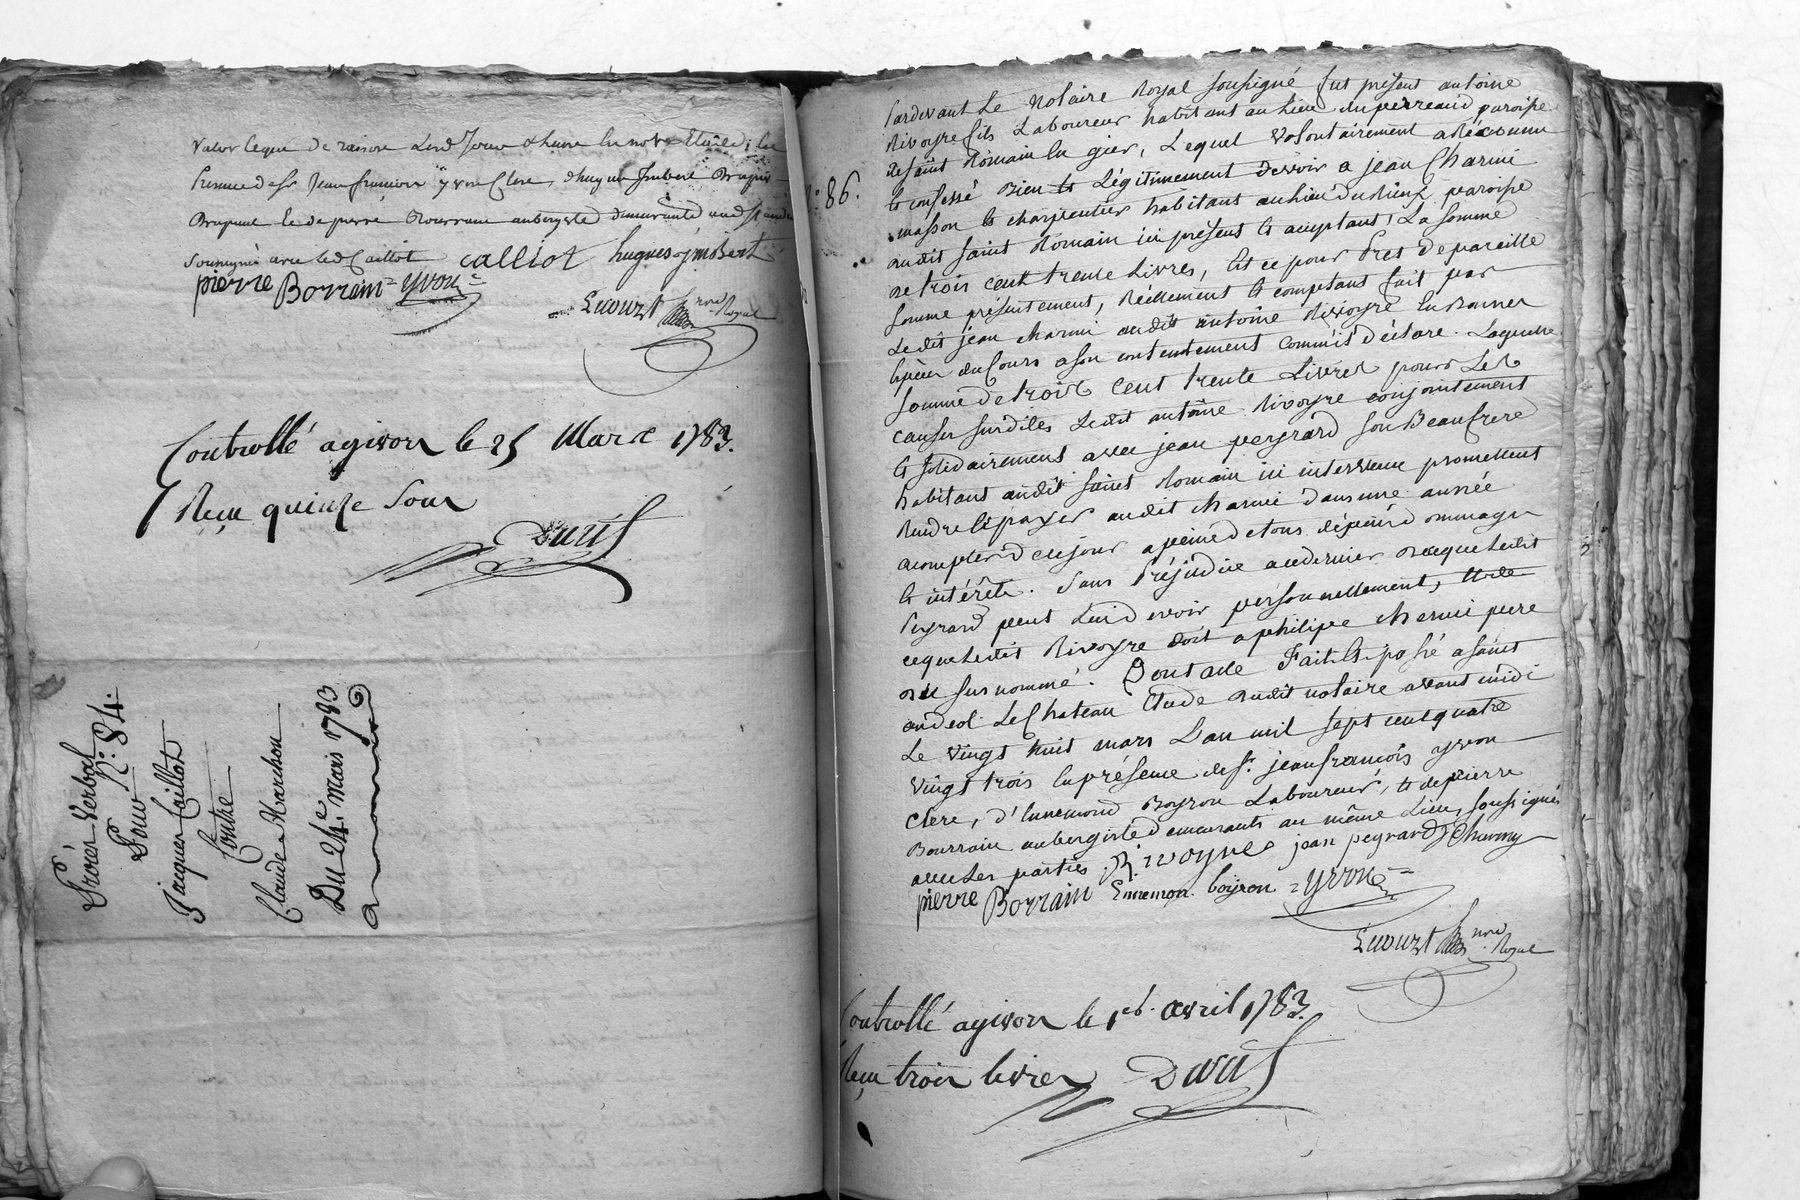 valoir ce que de raison lesd. Jour & heure en notre Etude; en
presence de Sr Jean françois yvon Clerc, d'hugue Imbert
& de pierre Bourrain aubergiste demeurants aud. St andeol
soussignés avec led. Caillot calliot hugues jmbert
pierre Borrain yvon
Lecourt nore Royal
Controllé a givors le 25 Mars 1783.
Reçu quinze Sous
Procès Verbal
N.° 84.
Pour
Jacques Caillot
Contre
Claude Marchon
Du 24.e Mars 1783
N.° 86.
Pardevant Le Notaire Royal soussigné fut présent antoine
Rivoyre fils Laboureur habitant au Lieu du perreaud paroisse
de saint Romain en gier, Lequel volontairement a Réconnu
et confessé bien et Légitimement devoir a jean Charmi
masson et charpentier habitant au lieu du paroisse
audit saint Romain ici présent et acceptant, La somme
de trois cent trente Livres, Et ce pour Pret de pareille
somme présentement, Réellement et comptant fait par
Ledit jean charmi audit antoine Rivoyre en bonnes
Espèces du Cours a son contentement comm'il déclare. Laquelle
somme de trois cent trente Livres pour Les
causes susdites Ledit antoine Rivoyre conjointement
et solidairement avec jean peyrard son Beaufrere
habitant audit saint Romain ici intervenu promettent
Rendre et payer audit charmi dans une année
a compter de ce jour a peine de tous dépens dommages
et intérêts. Sans Préjudice a ce dernier de ce que Ledit
Peyrard peut Lui devoir personnellement, et de
ce que Ledit Rivoyre doit a philipe charmi pere
du susnommé. Dont acte Fait et passé a saint
andeol Le Chateau Etude dudit notaire avant midi
Le vingt huit mars L'an mil sept cent quatre
vingt trois en présence de Sr. jean françois yvon
clerc, d'Ennemond Boyron Laboureur, et de pierre
Bourrain aubergiste demeurants au même Lieu, soussignés
avec Les parties Rivoyre jean peyrard Charmy
pierre Borrain Ennemon boyron yvon
Lecourt nore Royal
Controllé a givors le 1er avril 1783.
Reçu trois livres